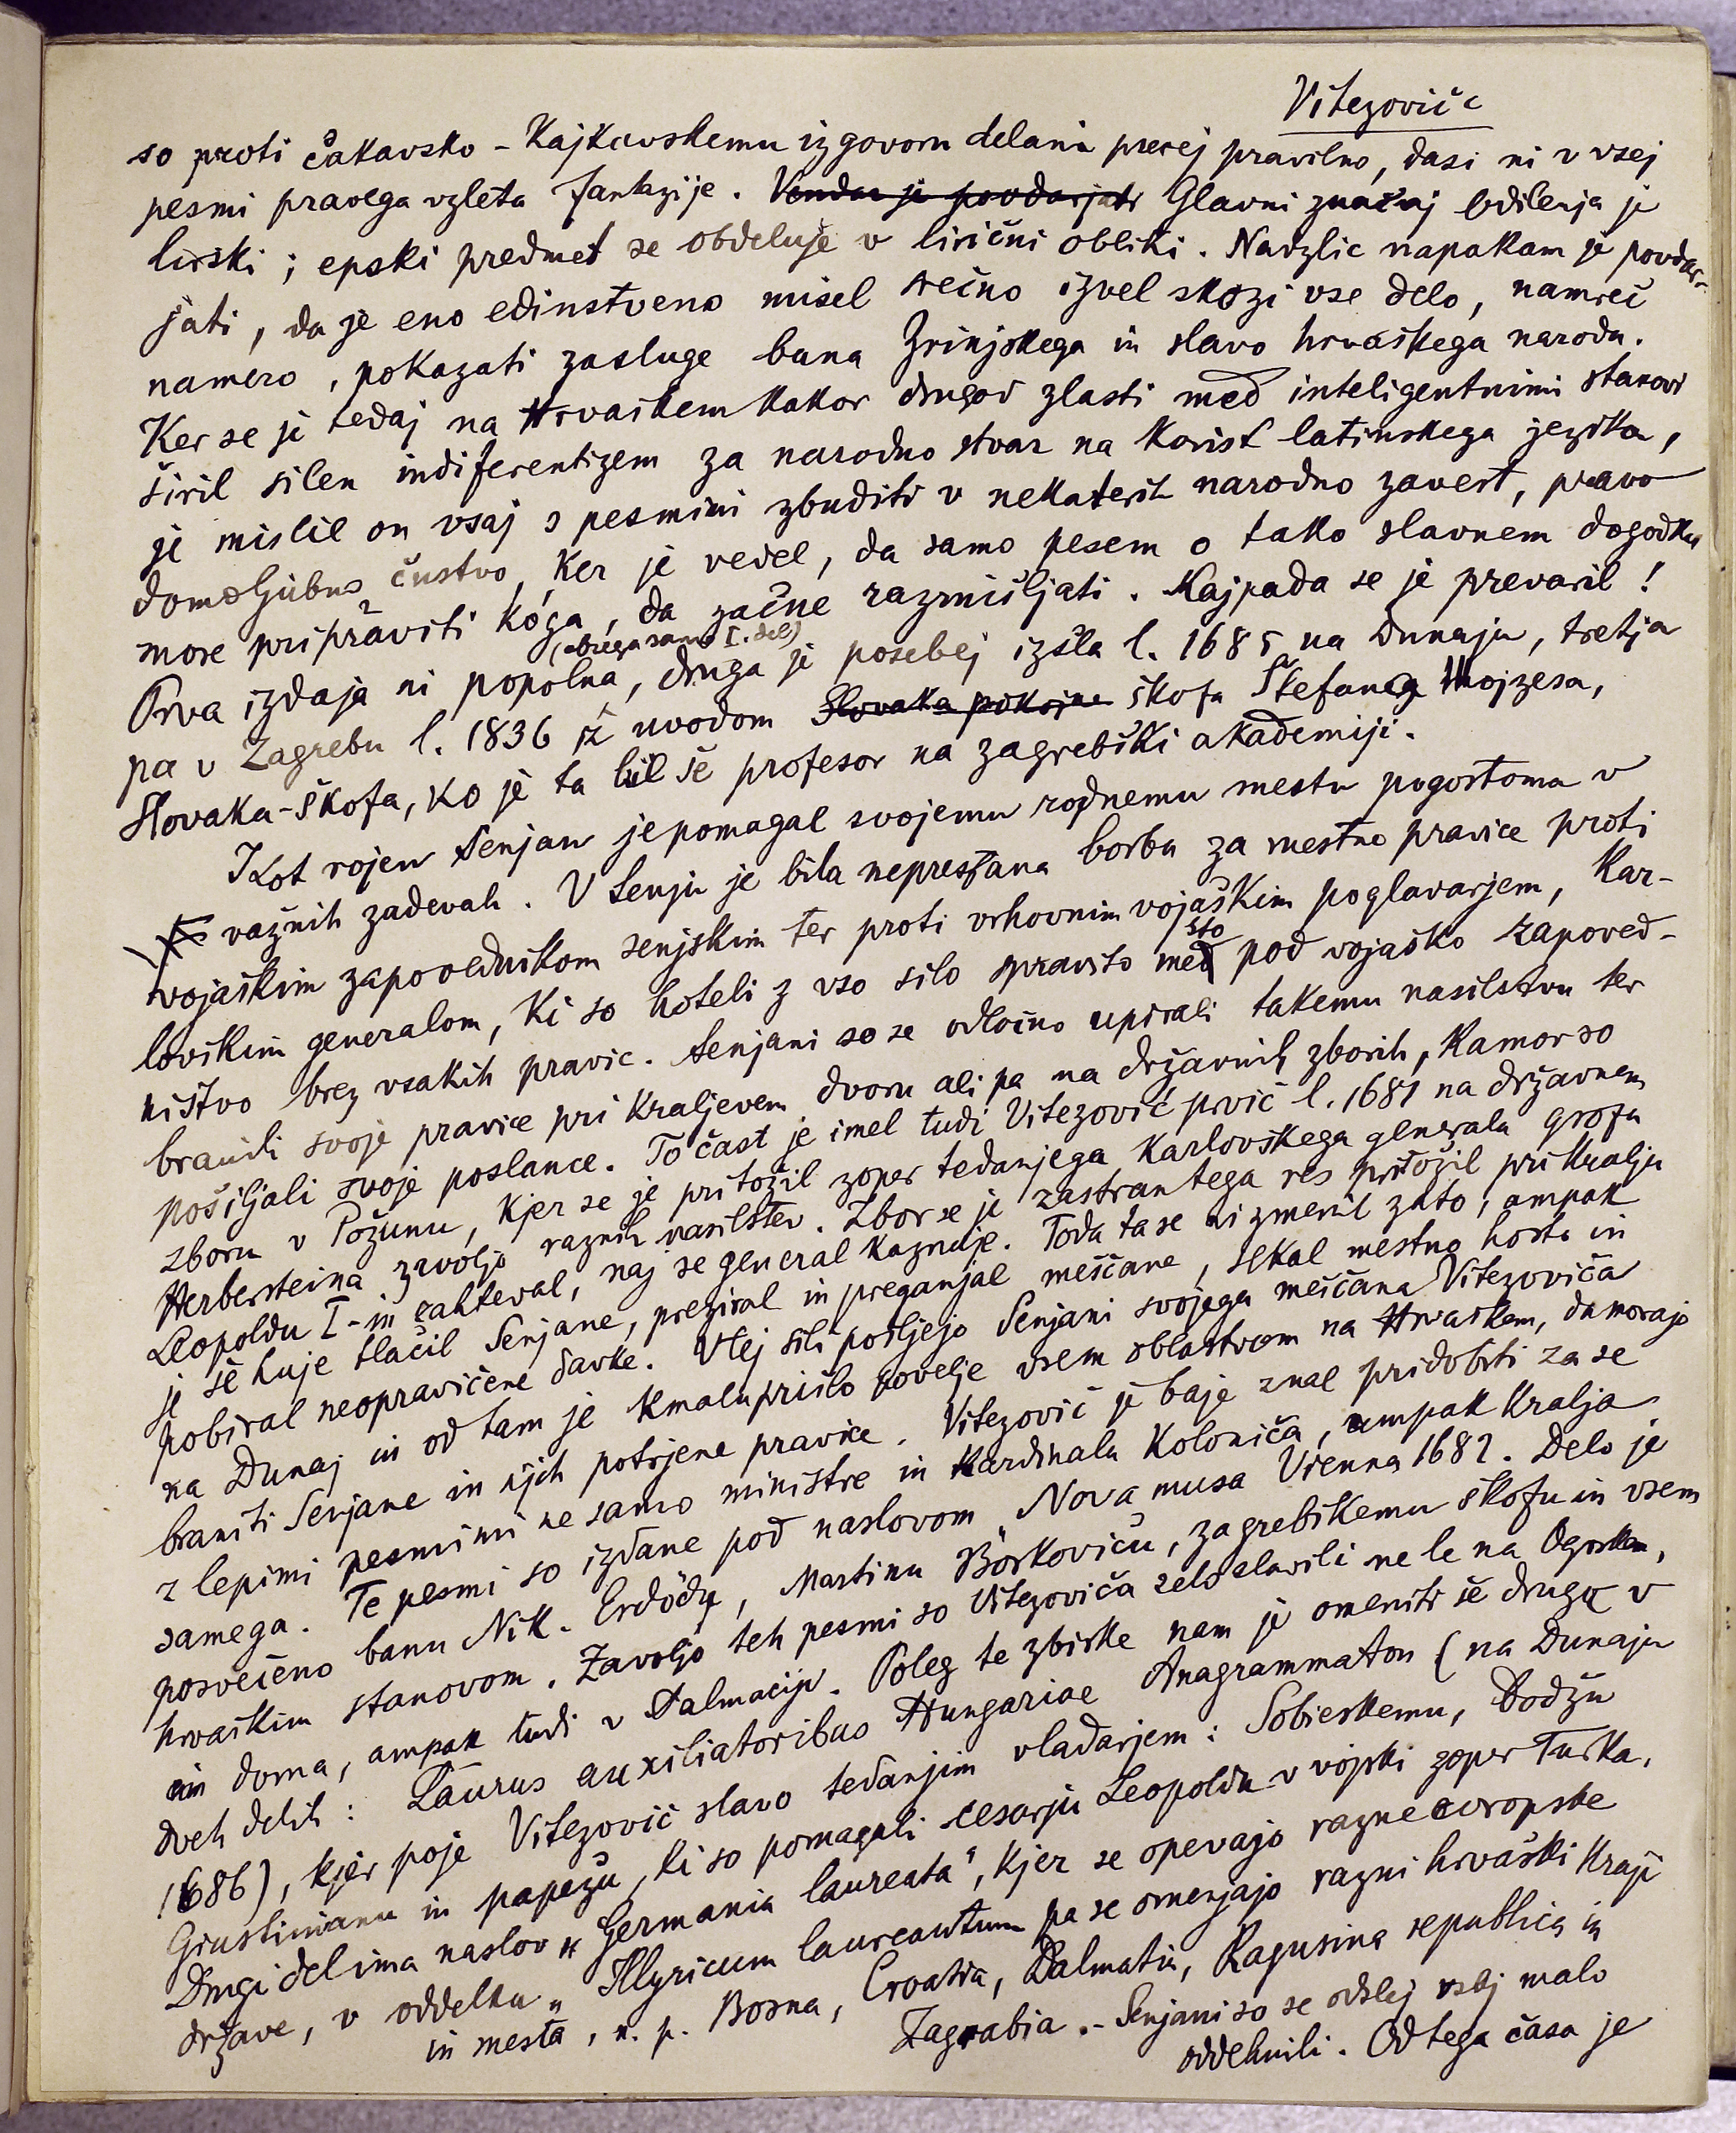 Vitezoviče
so proti čakavsko-kajkavskemu izgovoru delani precej pravilno, dasi ni v vsej
pesmi pravega vzleta fantazije. Vendar je povdarjati Glavni značaj Odilenja je
lirski; epski predmet se obdeluje v lirični obliki. Navzlic napakam je povdar-
jati, da je eno edinstveno misel srečno izvel skozi vse delo, namreč
namero, pokazati zasluge bana Zrinjskega in slavo hrvaškega naroda.
Ker se je tedaj na Hrvaškem kakor drugod zlasti med inteligentnimi stanovi
širil silen indiferentizem za narodno stvar na korist latinskega jezika,
je mislil on vsaj s pesmimi zbuditi v nekaterih narodno zavest, pravo
domoljubno čustvo, ker je vedel, da samo pesem o tako slavnem dogodku
more pripraviti koga, da začne razmišljati. Kajpada se je prevaril!
(obsega samo I. del)
Prva izdaja ni popolna, druga je posebej izšla l. 1685 na Dunaju, tretja
pa v Zagrebu l. 1836 iz uvodom Slovaka pokojne škofa Štefana Mojzesa,
Slovaka-škofa, ko je ta bil še profesor na zagrebški akademiji.
Kot rojen Senjan je pomagal svojemu rodnemu mestu pogostoma v
važnih zadevah. V Senju je bila neprestana borba za mestne pravice proti
vojaškim zapovednikom senjskim ter proti vrhovnim vojaškim poglavarjem, kar-
sto
lovškim generalom, ki so hoteli z vso silo spravito med pod vojaško zapoved-
ništvo brez vsakih pravic. Senjani so se odločno upirali takemu nasilstvu ter
branili svoje pravice pri kraljevem dvoru ali pa na državnih zborih, kamor so
pošiljali svoje poslance. To čast je imel tudi Vitezović prvič l. 1681 na državnem
zboru v Požunu, kjer se je pritožil zoper tedanjega karlovškega generala grofa
Herbersteina zavoljo raznih nasilstev. Zbor se je zastran tega res pritožil pri kralju
Leopoldu I-in zahteval, naj se general kaznuje. Toda ta se ni zmenil zato, ampak
je še huje tlačil Senjane, preziral in preganjal meščane, sekal mestno hosto in
pobiral neopravičene davke. V tej sili pošljejo Senjani svojega meščana Vitezoviča
na Dunaj in od tam je kmalu prišlo povelje vsem oblastvom na Hrvaškem, da morajo
braniti Senjane in njih potrjene pravice. Vitezović je baje znal pridobiti za se
z lepimi pesmimi ne samo ministre in kardinala Koloniča, ampak kralja
samega. Te pesmi so izdane pod naslovom „Nova musa Vienna 1682. Delo je
posvečeno banu Nik. Erdödy, Martinu Borkoviču, zagrebškemu škofu in vsem
hrvaškim stanovom. Zavoljo teh pesmi so Vitezoviča zelo slavili ne le na Ogrskem,
in doma, ampak tudi v Dalmaciji. Poleg te zbirke nam je omeniti še drugo v
dveh delih: Laurus auxiliatoribus Hungariae Anagrammaton (na Dunaju
1686), kjer poje Vitezović slavo tedanjim vladarjem: Sobieskemu, Dodžu
Giustinianu in papežu, ki so pomagali cesarju Leopoldu v vojski zoper Turka.
Drugi del ima naslov „Germania laureata", kjer se opevajo razne evropske
države, v oddelku „Illyricum laureatum pa se omenjajo razni hrvaški kraji
in mesta, n. p. Bosna, Croatia, Dalmatia, Ragusina republica in
Zagrabia. - Senjani so se odslej vsaj malo
oddehnili. Od tega časa je